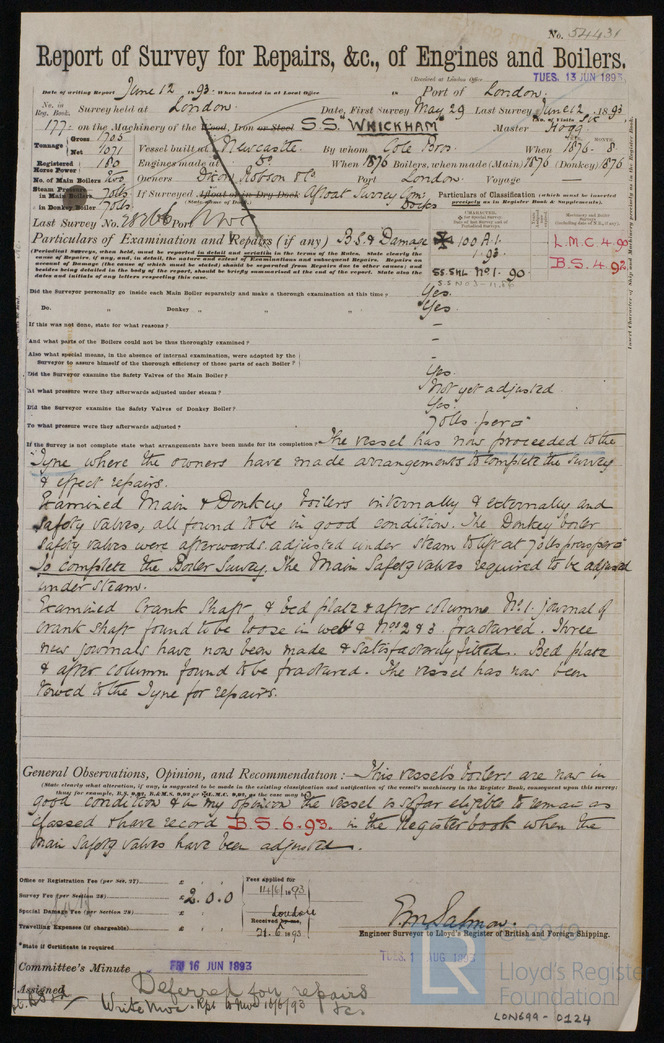 No. 54431
Report of Survey for Repairs, &c., of Engines and Boilers.
(Received at London Office TUES. 13 JUN 1893
Date of writing Report June 12 1893. When handed in at Local Office 18 Port of London.
No. in Reg. Book. Survey held at London. Date, First Survey May 29 Last Survey June 12 1893
(No. of Visits Six
177 on the Machinery of the Wood, Iron or Steel S.S. "WHICKHAM" Master Hogg
Tonnage Gross 1705 Net 1071 Vessel built at Newcastle. By whom Cole Bros. When 1876 - 8.
Registered Horse Power 180 Engines made at Do. When 1876 Boilers, when made (Main) 1876 (Donkey) 1876
No. of Main Boilers two Owners Dixon Robson & Co Port London. Voyage —
Steam Pressure in Main Boilers 70lbs If Surveyed Afloat or in Dry Dock Afloat Surrey Com. Docks
in Donkey Boiler 70lbs (State name of Dock.)
Particulars of Classification (which must be inserted precisely as in Register Book & Supplements).
Last Survey No. 28266 Port Nwc
Particulars of Examination and Repairs (if any) B.S. & Damage
100 A.1. 1.93.
SS. SHL No 1. 90
L.M.C. 4.90
B.S. 4.92.
(Periodical Surveys, when held, must be reported in detail and seriatim in the terms of the Rules. State clearly the cause of Repairs, if any, and, in detail, the nature and extent of Examinations and subsequent Repairs. Repairs on account of Damage (the cause of which must be stated) should be separated from Repairs due to other causes; and besides being detailed in the body of the report, should be briefly summarised at the end of the report. State also the dates and initials of any letters respecting this case.
Did the Surveyor personally go inside each Main Boiler separately and make a thorough examination at this time? Yes.
Do. " Donkey " " " Yes.
If this was not done, state for what reasons? —
And what parts of the Boilers could not be thus thoroughly examined? —
Also what special means, in the absence of internal examination, were adopted by the Surveyor to assure himself of the thorough efficiency of those parts of each Boiler? —
Did the Surveyor examine the Safety Valves of the Main Boiler? Yes.
At what pressure were they afterwards adjusted under steam? Not yet adjusted.
Did the Surveyor examine the Safety Valves of Donkey Boiler? Yes.
To what pressure were they afterwards adjusted? 70lbs. per □"
If the Survey is not complete state what arrangements have been made for its completion? The vessel has now proceeded to the
Tyne where the owners have made arrangements to complete the survey
& effect repairs.
Examined Main & Donkey boilers internally & externally and
safety valves, all found to be in good condition. The Donkey boiler
safety valves were afterwards adjusted under steam to lift at 70lbs press per □"
To complete the Boiler Survey. The Main Safety valves required to be adjusted
under steam.
Examined Crank Shaft, & bed plate & after column. No. 1. journal of
crank shaft found to be loose in web & Nos 2 & 3. fractured. Three
new journals have now been made & satisfactorily fitted. Bed plate
& after column found to be fractured. The vessel has now been
towed to the Tyne for repairs.
General Observations, Opinion, and Recommendation :— This vessel's boilers are now in
(State clearly what alteration, if any, is suggested to be made in the existing classification and notification of the vessel's machinery in the Register Book, consequent upon this survey;
good condition & in my opinion the vessel is so far eligible to remain as
classed & have record B.S. 6. 93. in the Register book when the
main safety valves have been adjusted.
Office or Registration Fee (per Sec. 27) £ : :
Survey Fee (per Section 28) £ 2.0.0
Special Damage Fee (per Section 28) £ : :
Travelling Expenses (if chargeable) £ : :
Fees applied for 14/6/1893
Received by me, London
21.6.1893
Engineer Surveyor to Lloyd's Register of British and Foreign Shipping.
*State if Certificate is required
Committee's Minute FRI 16 JUN 1893
TUES. 1 AUG 1893
Assigned Deferred for repairs &c.
Write Nwc. Rpt to Nwc 16/6/93
© 2019
LR
Lloyd's Register
Foundation
LON699-0124